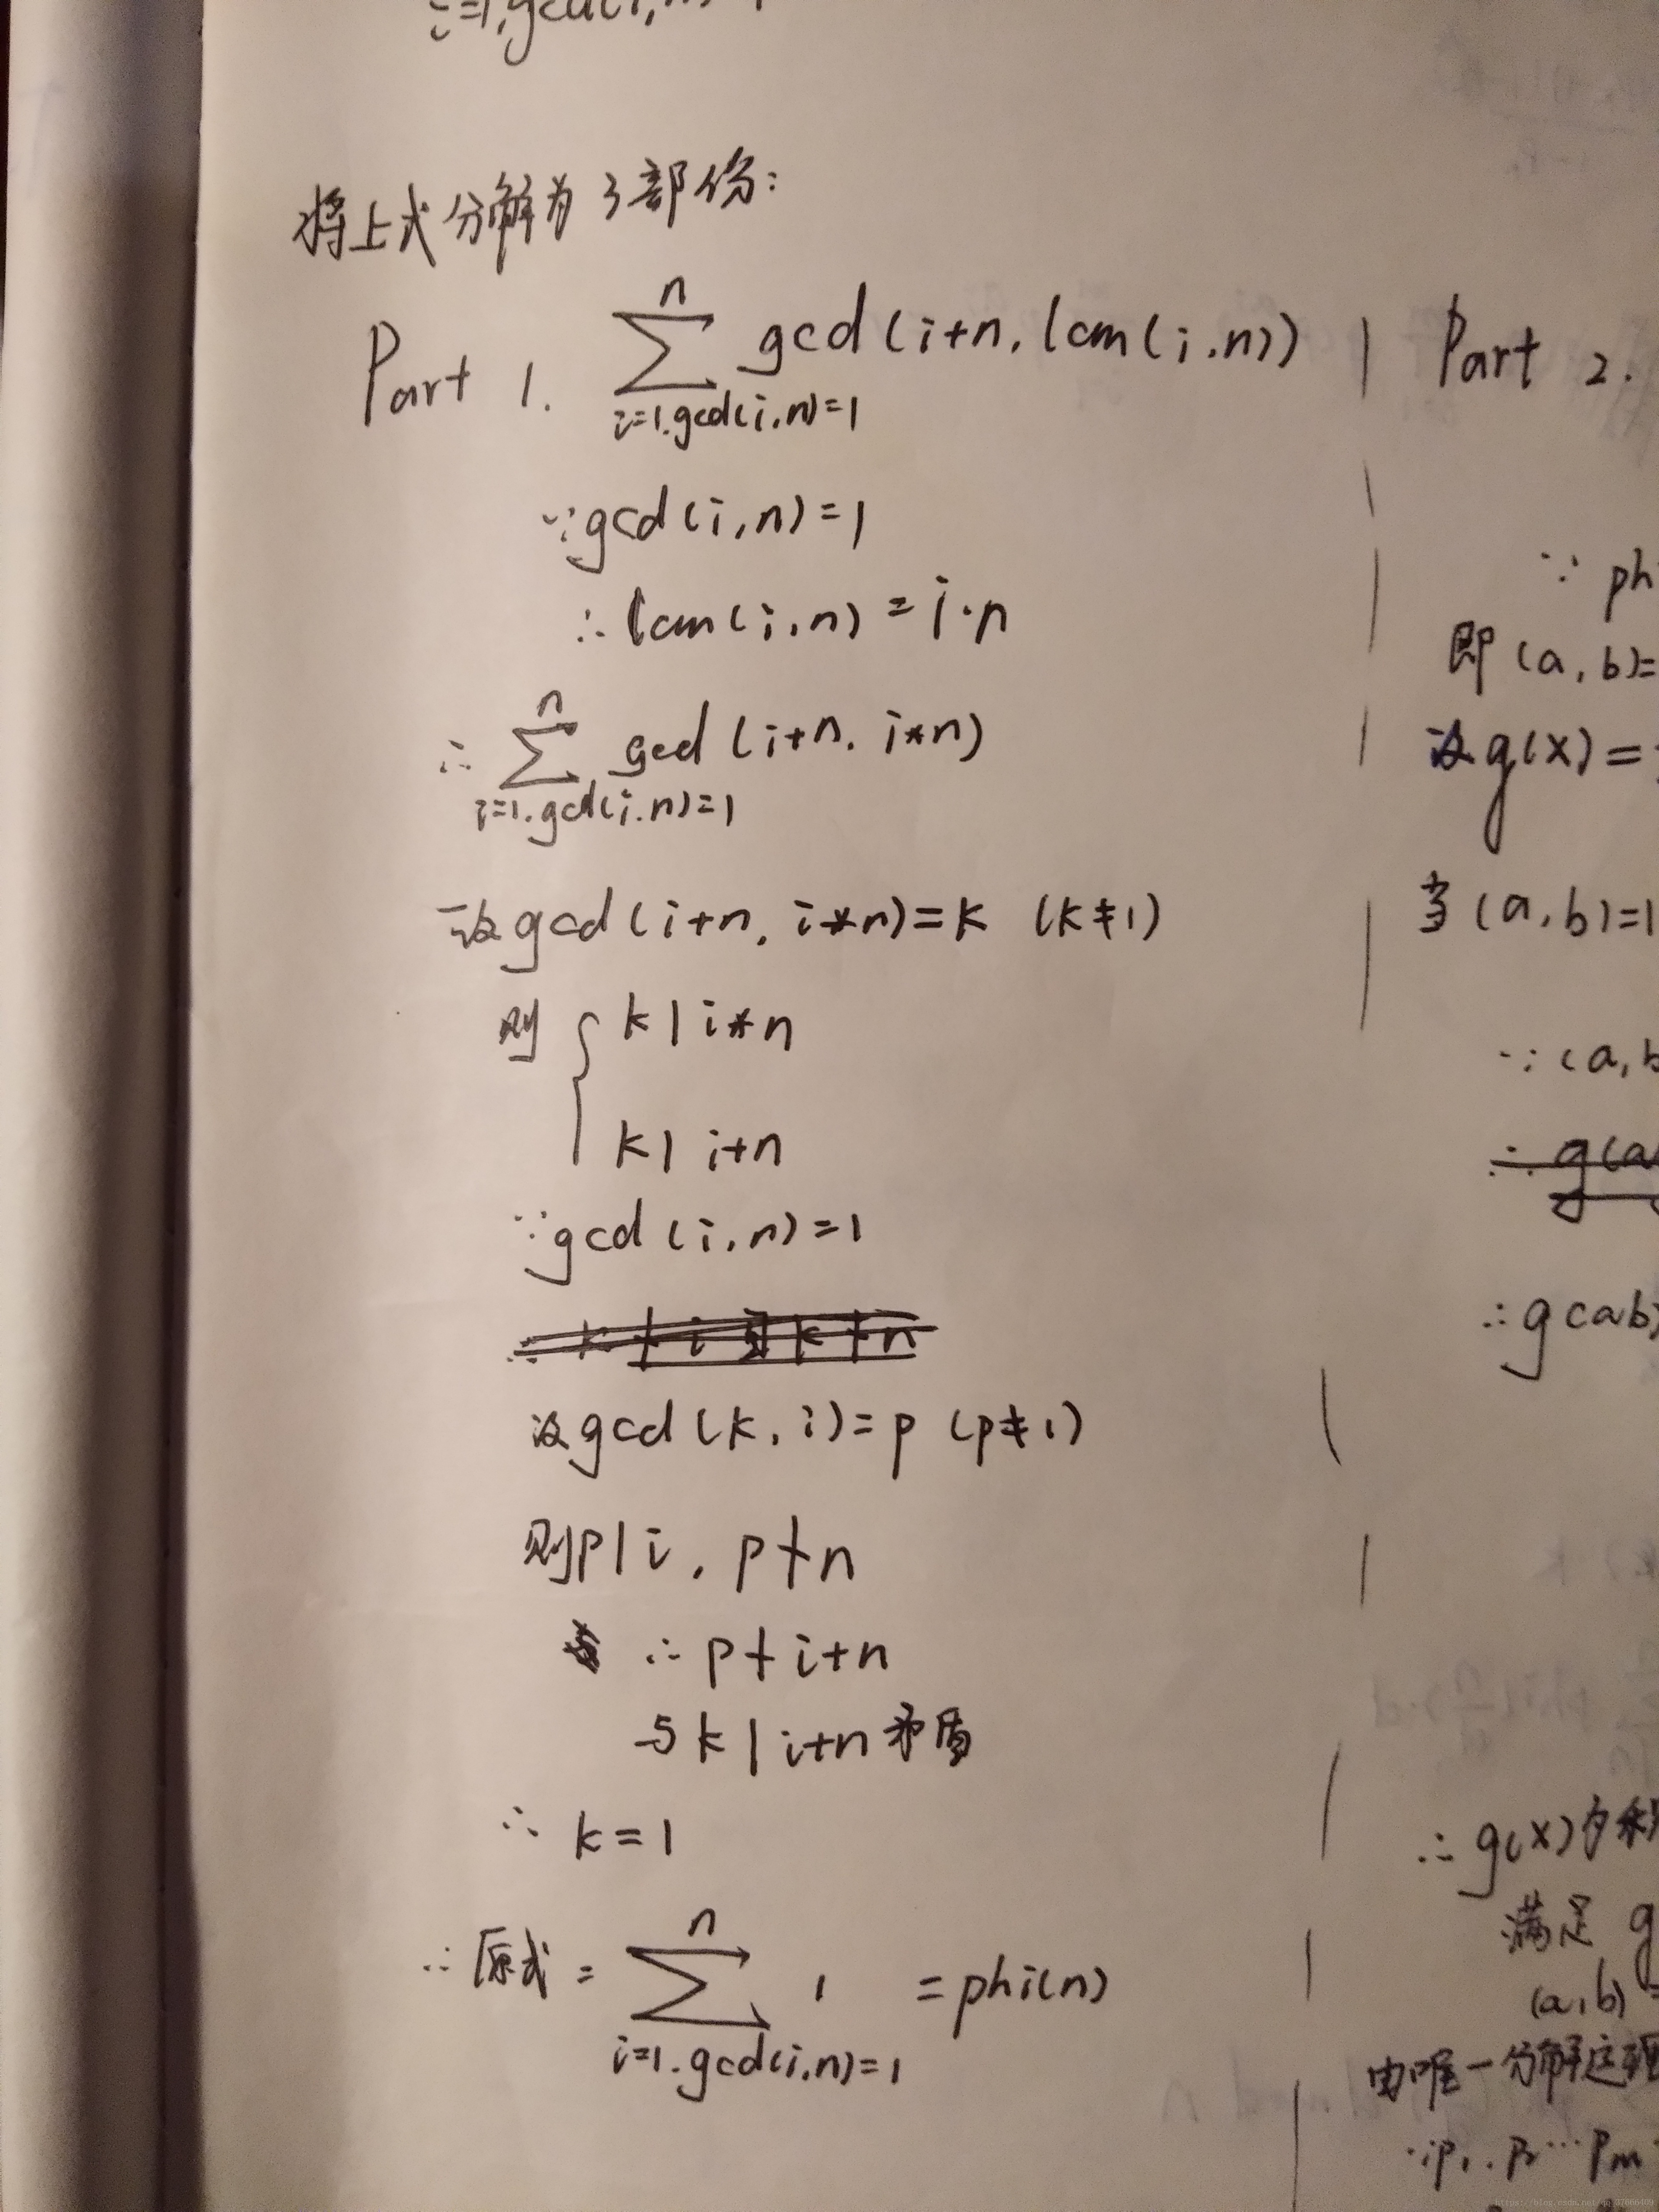 i=1,gcd(i,n)
将上式分解为3部份:
Part 1. n∑i=1.gcd(i,n)=1 gcd(i+n, lcm(i,n))
∵gcd(i,n)=1
∴lcm(i,n)=i·n
∴ n∑i=1.gcd(i.n)=1 gcd(i+n, i*n)
设gcd(i+n, i*n)=k (k≠1)
则 { k|i*n
k|i+n
∵gcd(i,n)=1
∴ k∤i 且 k∤n
设gcd(k,i)=p (p≠1)
则p|i, p∤n
∴ p∤i+n
与k|i+n矛盾
∴ k=1
∴原式= n∑i=1.gcd(i,n)=1 1 =phi(n)
Part 2.
∵ ph
即(a,b)=
设g(x)=
当(a,b)=1
∵(a,b
∴g(a
∴g(ab)
∴g(x)为积
满足 g
(a,b)=
由唯一分解定理
∵p1.p2…pm